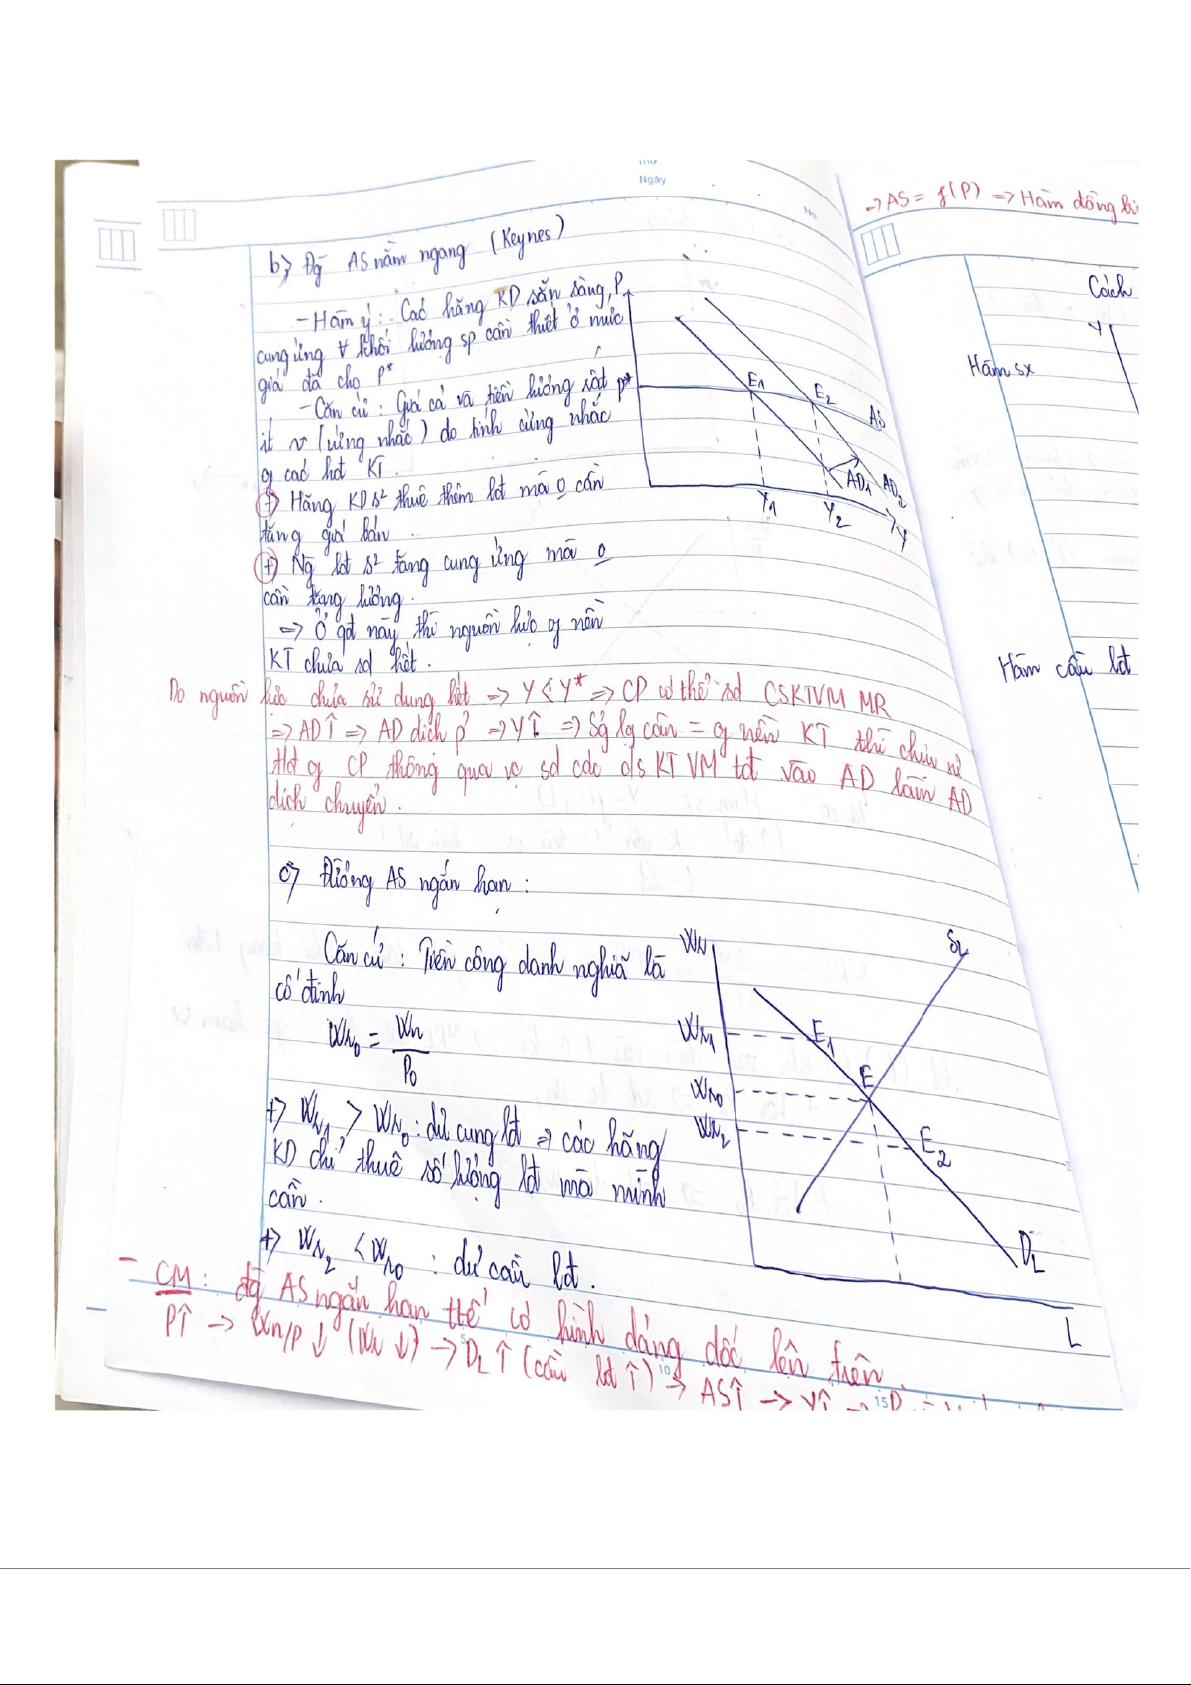 Thứ
Ngày
No.
b) Đg AS nằm ngang (Keynes)
- Hàm ý: Các hãng KD sẵn sàng
cung ứng ∀ khối lượng sp cần thiết ở mức
giá đã cho P*
- Căn cứ: Giá cả và tiền lương rất
ít (cứng nhắc) do tính cứng nhắc
các hđ KT.
+) Hãng KD s² thuê thêm lđ mà o cần
tăng giá bán
+) Ng lđ s² tăng cung ứng mà o
cần tăng lương.
=> Ở gđ này, thì nguồn lực nền
KT chưa sd hết.
P
P*
E1
E2
AS
AD1
AD2
Y1
Y2
Y
Do nguồn lực chưa sử dụng hết => Y < Y* => CP có thể sd CSKTVM MR
=> AD↑ => AD dịch p => Y↑ => Sg lg cân = nền KT thì chịu
Hđ CP thông qua vc sd các c/s KTVM tđ vào AD làm AD
dịch chuyển.
c) Đường AS ngắn hạn:
Căn cứ: Tiền công danh nghĩa là
cố định
WN0 = Wn
P0
+) WN1 > WN0: dư cung lđ => các hãng
KD chỉ thuê số lượng lđ mà mình
cần.
+) WN2 < WN0: dư cầu lđ.
WN
SL
WN1
E1
WN0
E
WN2
E2
DL
L
- CM: đg AS ngắn hạn thể có hình dáng dốc lên trên.
P↑ -> Wn/P ↓ (Wn ↓) -> DL ↑ (cầu lđ ↑) -> AS↑ -> Y↑
5
10
15
=> AS = f(P) => Hàm đồng
Cách
Y
Hàm sx
Hàm cầu lđ